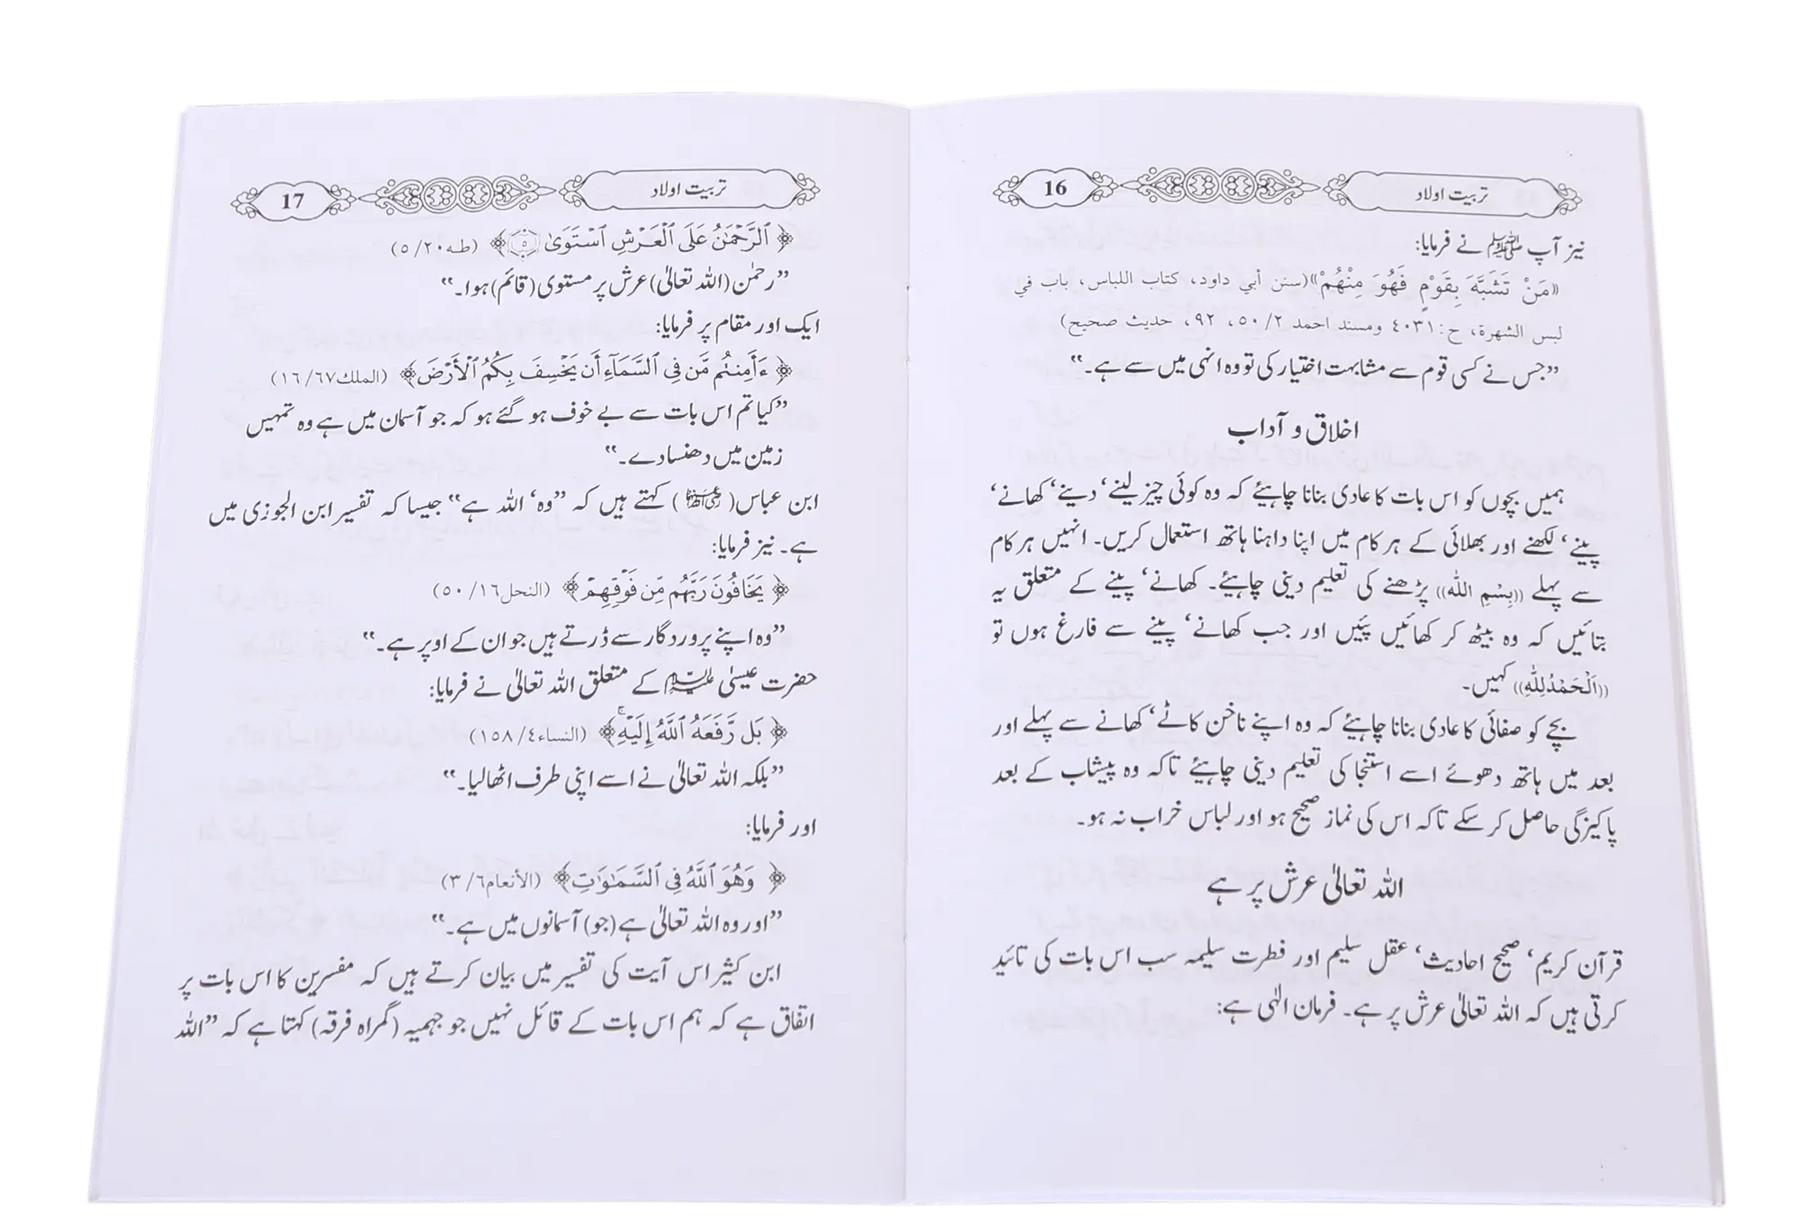 تربیت اولاد 16
نیز آپ ﷺ نے فرمایا:
«مَنْ تَشَبَّهَ بِقَوْمٍ فَهُوَ مِنْهُمْ»(سنن أبي داود، كتاب اللباس، باب في
لبس الشهرة، ح:٤٠٣١ ومسند احمد ٢/ ٥٠، ٩٢، حديث صحيح)
”جس نے کسی قوم سے مشابہت اختیار کی تو وہ انہی میں سے ہے۔“
اخلاق و آداب
ہمیں بچوں کو اس بات کا عادی بنانا چاہیئے کہ وہ کوئی چیز لینے‘ دینے‘ کھانے‘
پینے‘ لکھنے اور بھلائی کے ہر کام میں اپنا داہنا ہاتھ استعمال کریں۔ انہیں ہر کام
سے پہلے ((بِسْمِ اللہ)) پڑھنے کی تعلیم دینی چاہیئے۔ کھانے‘ پینے کے متعلق یہ
بتائیں کہ وہ بیٹھ کر کھائیں پئیں اور جب کھانے‘ پینے سے فارغ ہوں تو
((اَلْحَمْدُلِلّٰهِ)) کہیں۔
بچے کو صفائی کا عادی بنانا چاہیئے کہ وہ اپنے ناخن کاٹے‘ کھانے سے پہلے اور
بعد میں ہاتھ دھوئے اسے استنجا کی تعلیم دینی چاہیئے تاکہ وہ پیشاب کے بعد
پاکیزگی حاصل کر سکے تاکہ اس کی نماز صحیح ہو اور لباس خراب نہ ہو۔
اللہ تعالیٰ عرش پر ہے
قرآن کریم‘ صحیح احادیث‘ عقل سلیم اور فطرت سلیمہ سب اس بات کی تائید
کرتی ہیں کہ اللہ تعالیٰ عرش پر ہے۔ فرمان الٰہی ہے:
تربیت اولاد 17
﴿ ٱلرَّحْمَٰنُ عَلَى ٱلْعَرْشِ ٱسْتَوَىٰ ۝٥﴾ (طه٢٠/ ٥)
”رحمٰن (اللہ تعالیٰ) عرش پر مستوی (قائم) ہوا۔“
ایک اور مقام پر فرمایا:
﴿ ءَأَمِنتُم مَّن فِى ٱلسَّمَآءِ أَن يَخْسِفَ بِكُمُ ٱلْأَرْضَ﴾ (الملك٦٧/ ١٦)
”کیا تم اس بات سے بے خوف ہو گئے ہو کہ جو آسمان میں ہے وہ تمہیں
زمین میں دھنسا دے۔“
ابن عباس( رضی اللہ عنہما ) کہتے ہیں کہ ”وہ‘ اللہ ہے“ جیسا کہ تفسیر ابن الجوزی میں
ہے۔ نیز فرمایا:
﴿ يَخَافُونَ رَبَّهُم مِّن فَوْقِهِمْ﴾ (النحل١٦/ ٥٠)
”وہ اپنے پروردگار سے ڈرتے ہیں جو ان کے اوپر ہے۔“
حضرت عیسیٰ علیہ السلام کے متعلق اللہ تعالیٰ نے فرمایا:
﴿ بَل رَّفَعَهُ ٱللَّهُ إِلَيْهِ ۚ﴾ (النساء٤/ ١٥٨)
”بلکہ اللہ تعالیٰ نے اسے اپنی طرف اٹھا لیا۔“
اور فرمایا:
﴿ وَهُوَ ٱللَّهُ فِى ٱلسَّمَٰوَٰتِ﴾ (الأنعام٦/ ٣)
”اور وہ اللہ تعالیٰ ہے (جو) آسمانوں میں ہے۔“
ابن کثیر اس آیت کی تفسیر میں بیان کرتے ہیں کہ مفسرین کا اس بات پر
اتفاق ہے کہ ہم اس بات کے قائل نہیں جو جہمیہ (گمراہ فرقہ) کہتا ہے کہ ”اللہ